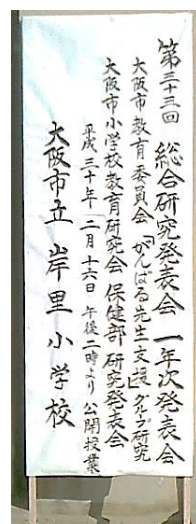 第三十三回 総合研究発表会 一年次発表会
大阪市教育委員会「がんばる先生支援」グループ研究
大阪市小学校教育研究会 保健部 研究発表会
平成三十年 二月十六日 午後二時より 公開授業
大阪市立 岸里小学校